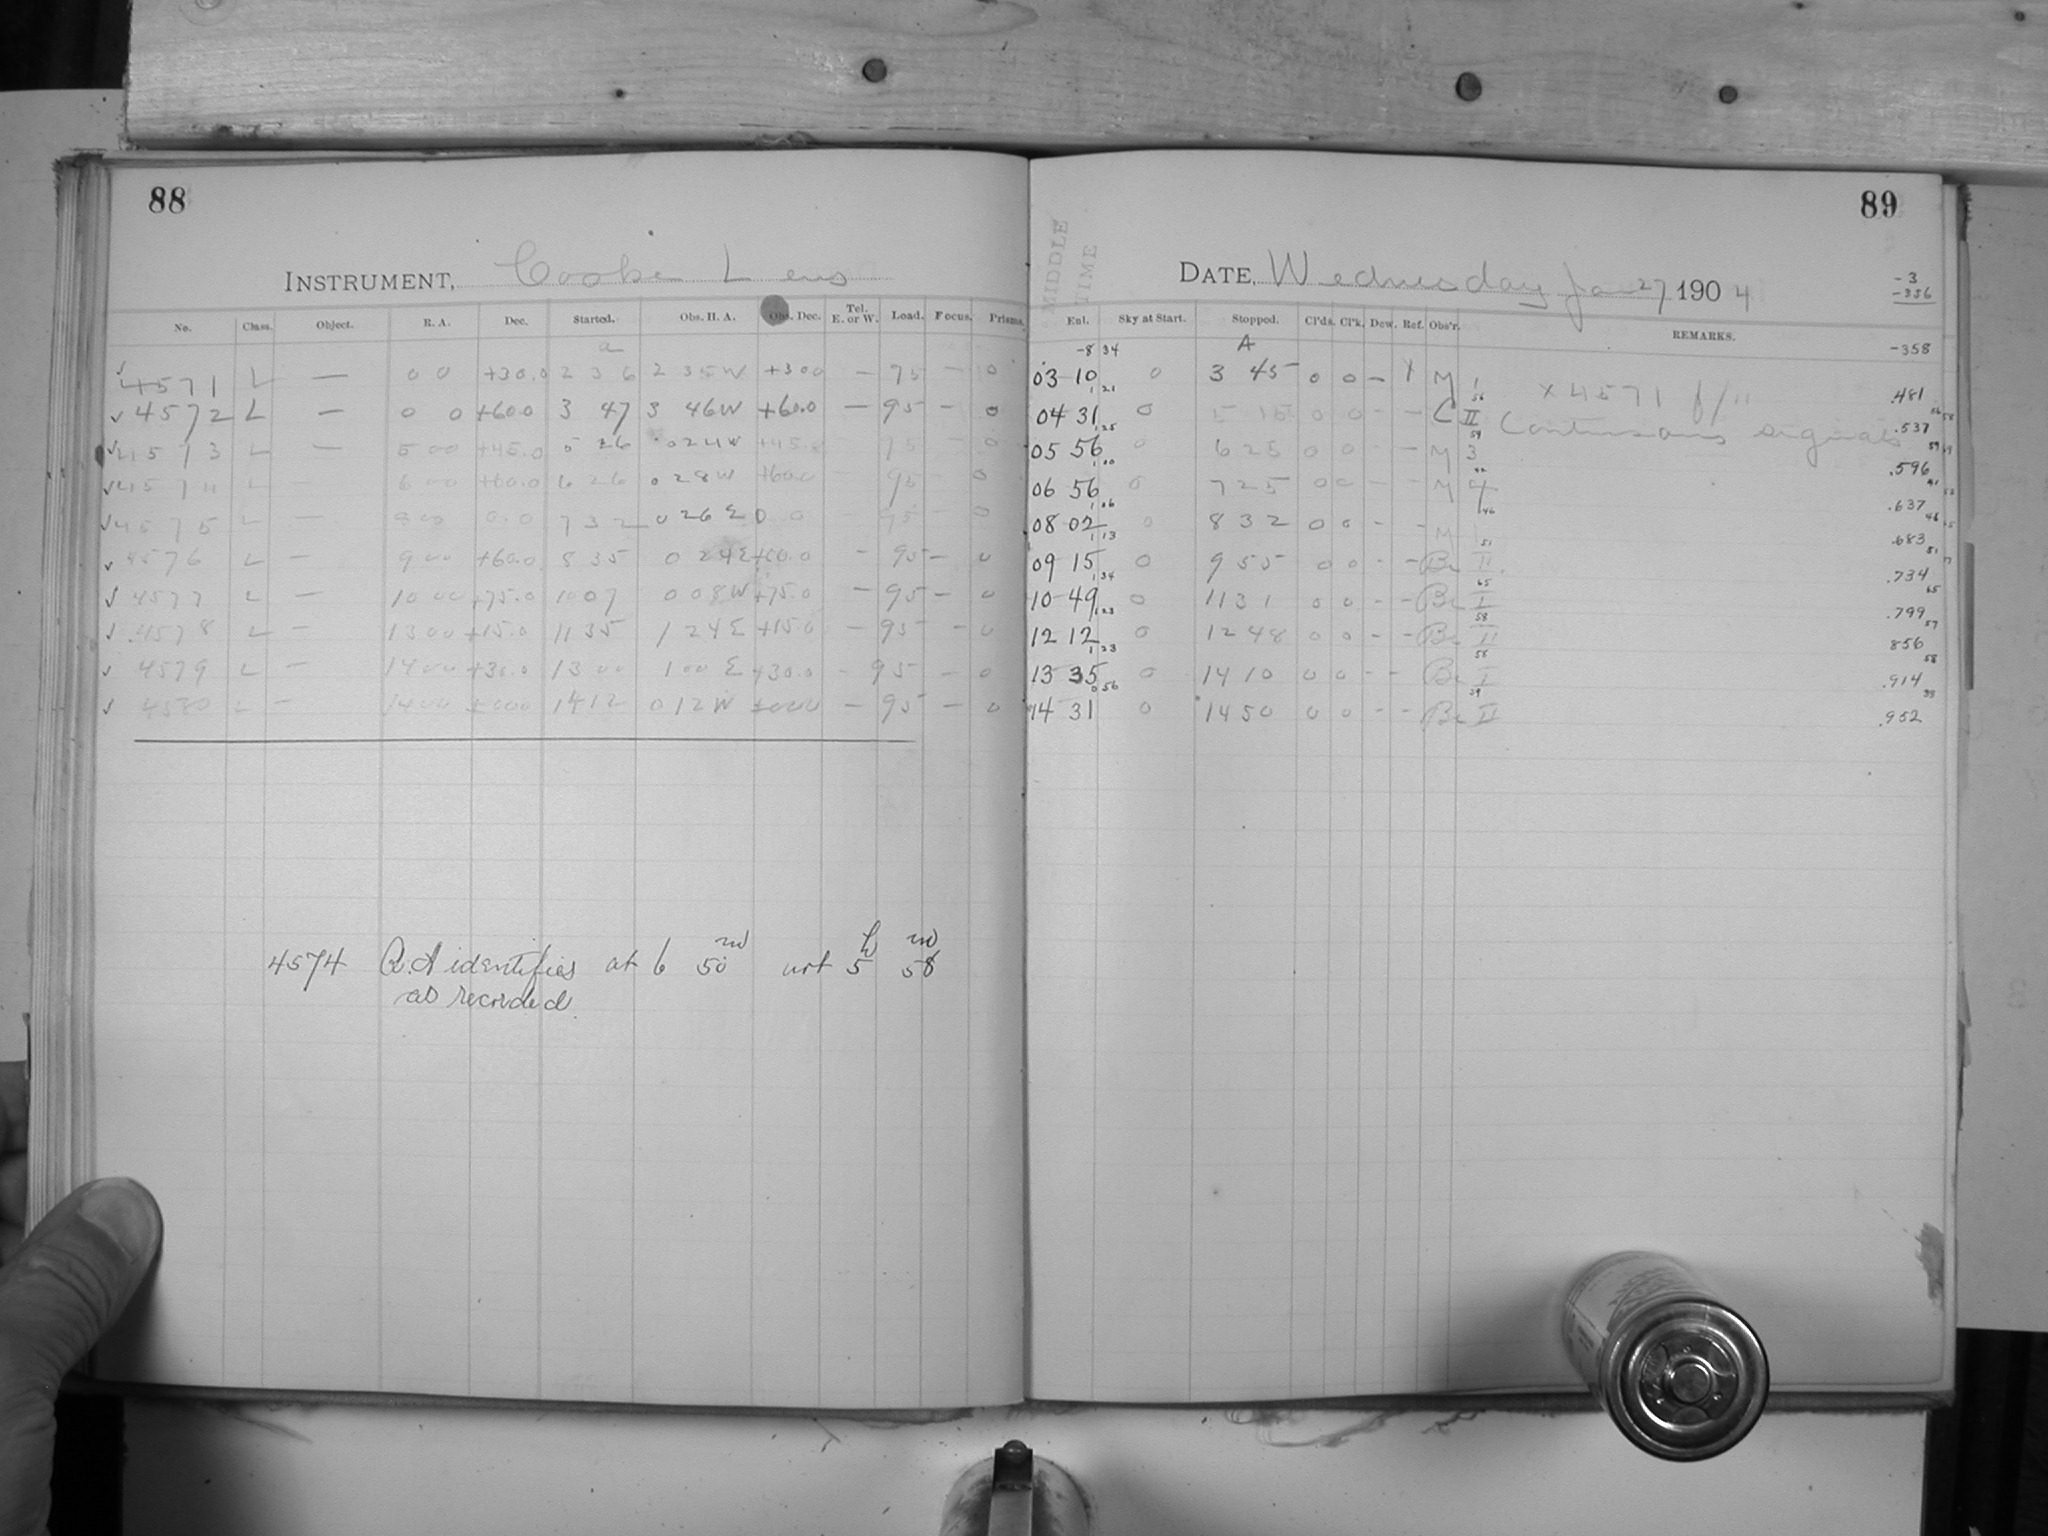 88
INSTRUMENT, Cooke Lens
No. Class. Object. R. A. Dec. Started. Obs. H. A. Obs. Dec. Tel. E. or W. Load. Focus. Prisms.
a
4571 L — 0 0 +30.0 2 36 2 35 W +30.0 — 95 — 0
✓ 4572 L — 0 0 +60.0 3 47 3 46 W +60.0 — 95 — 0
✓ 4573 L — 5 00 +45.0 5 26 0 24 W +45.0 — 95 — 0
✓ 4574 L — 6 00 +60.0 6 26 0 28 W +60.0 — 95 — 0
✓ 4575 L — 8 00 0.0 7 32 0 26 E 0 0 — 95 — 0
✓ 4576 L — 9 00 +60.0 8 35 0 24 E +60.0 — 95 — 0
✓ 4577 L — 10 00 +75.0 10 07 0 08 W +75.0 — 95 — 0
✓ 4578 L — 13 00 +15.0 11 35 1 24 E +15.0 — 95 — 0
✓ 4579 L — 14 00 +30.0 13 00 1 00 E +30.0 — 95 — 0
✓ 4580 L — 14 00 14 12 0 12 W — 95 — 0
4574 R.A identifies at 6 50 m not 5 h 58 m
as recorded.
89
MIDDLE
TIME
DATE, Wednesday Jan 27 1904
-3
-356
Enl. Sky at Start. Stopped. Cl'ds. Cl'k. Dew. Ref. Obs'r. REMARKS.
-8 34 A -358
03 10 0 3 45 0 0 — M 1 × 4571 f/11 .481
04 31 0 5 15 0 0 - - C II Continuous signals .537
05 56 0 6 25 0 0 - - M 3 .596
06 56 0 7 25 0 0 - - M 4 .637
08 02 0 8 32 0 0 - - M .683
09 15 0 9 55 0 0 - - Be II .734
10 49 0 11 31 0 0 - - Be I .799
12 12 0 12 48 0 0 - - Be II 856
13 35 0 14 10 0 0 - - Be I .914
14 31 0 14 50 0 0 - - Be II .952